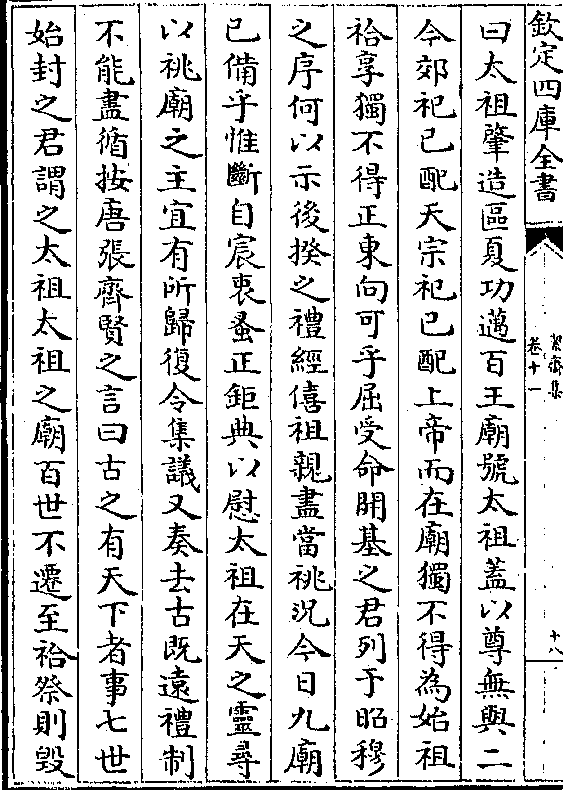 欽定四庫全書
絜齋集
卷十一
十八
曰太祖肇造區夏功邁百王廟號太祖蓋以尊無與二
今郊祀已配天宗祀已配上帝而在廟獨不得為始祖
祫享獨不得正東向可乎屈受命開基之君列于昭穆
之序何以示後揆之禮經僖祖親盡當祧況今日九廟
已備乎惟斷自宸衷蚤正鉅典以慰太祖在天之靈尋
以祧廟之主宜有所歸復令集議又奏去古既遠禮制
不能盡循按唐張齊賢之言曰古之有天下者事七世
始封之君謂之太祖太祖之廟百世不遷至祫祭則毀